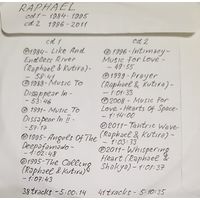 RAPHAEL
cd 1 - 1984-1995
cd 2 - 1996-2011
cd 1
①1984- Like And
Endless River
(Raphael & Kutira)-
- 58:41
①1988- Music To
Disappear In -
- 53:46
①1991- Music To
Dissapear In II -
- 57:19
①1995- Angels Of The
Deepafamado -
- 1:02:48
①1995- The Calling
(Raphael & Kutira)
- 1:07:43
38 tracks - 5:00:14
cd 2
①1996- Intimacy-
Music For Love -
- 49:55
①1999- Prayer
(Raphael & Kutira)-
- 1:03:33
①2008- Music For
Love - Hearts Of Space-
- 1:14:00
①2011- Tantric Wave-
(Raphael & Kutira)-
- 1:01:33
①2011- Whispering
Heart (Raphael &
Shakya) - 1:01:37
41 tracks - 5:10:35